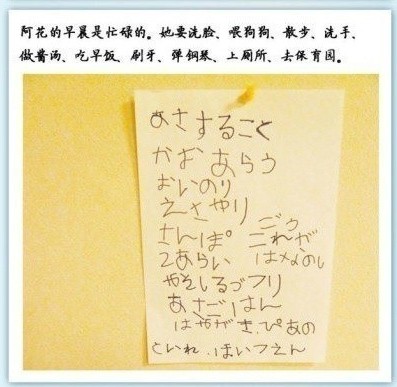 阿花的早晨是忙碌的。她要洗脸、喂狗狗、散步、洗手、
做酱汤、吃早饭、刷牙、弹钢琴、上厕所、去保育园。
あさすること
かおあらう
おいのり
えさやり
さんぽ これが
てあらい はなのし
みそしるづくり
あさごはん
はみがき、ぴあの
といれ、ほいくえん